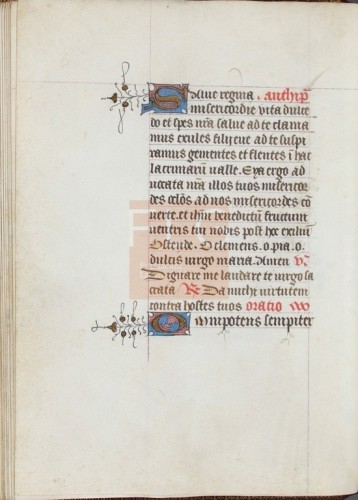 Salue regina. anthip̄
misericordie vita dulce
do et spes nr̄a salue ad te clama
mus exules filij eue ad te suspi
ramus gementes et flentes ī hac
lacrimarū ualle. Eya ergo ad
uocata nr̄a illos tuos misericor
des oc̄los ad nos misericordes cō
uerte. et ih̄m benedictū fructum
uentris tui nobis post hoc exiliū
Ostende. O clemens. o pia. o
dulcis uirgo maria. Amen V̄
Dignare me laudare te uirgo sa
crata R̄ Da michi uirtutem
contra hostes tuos oratio
Omnipotens sempiter